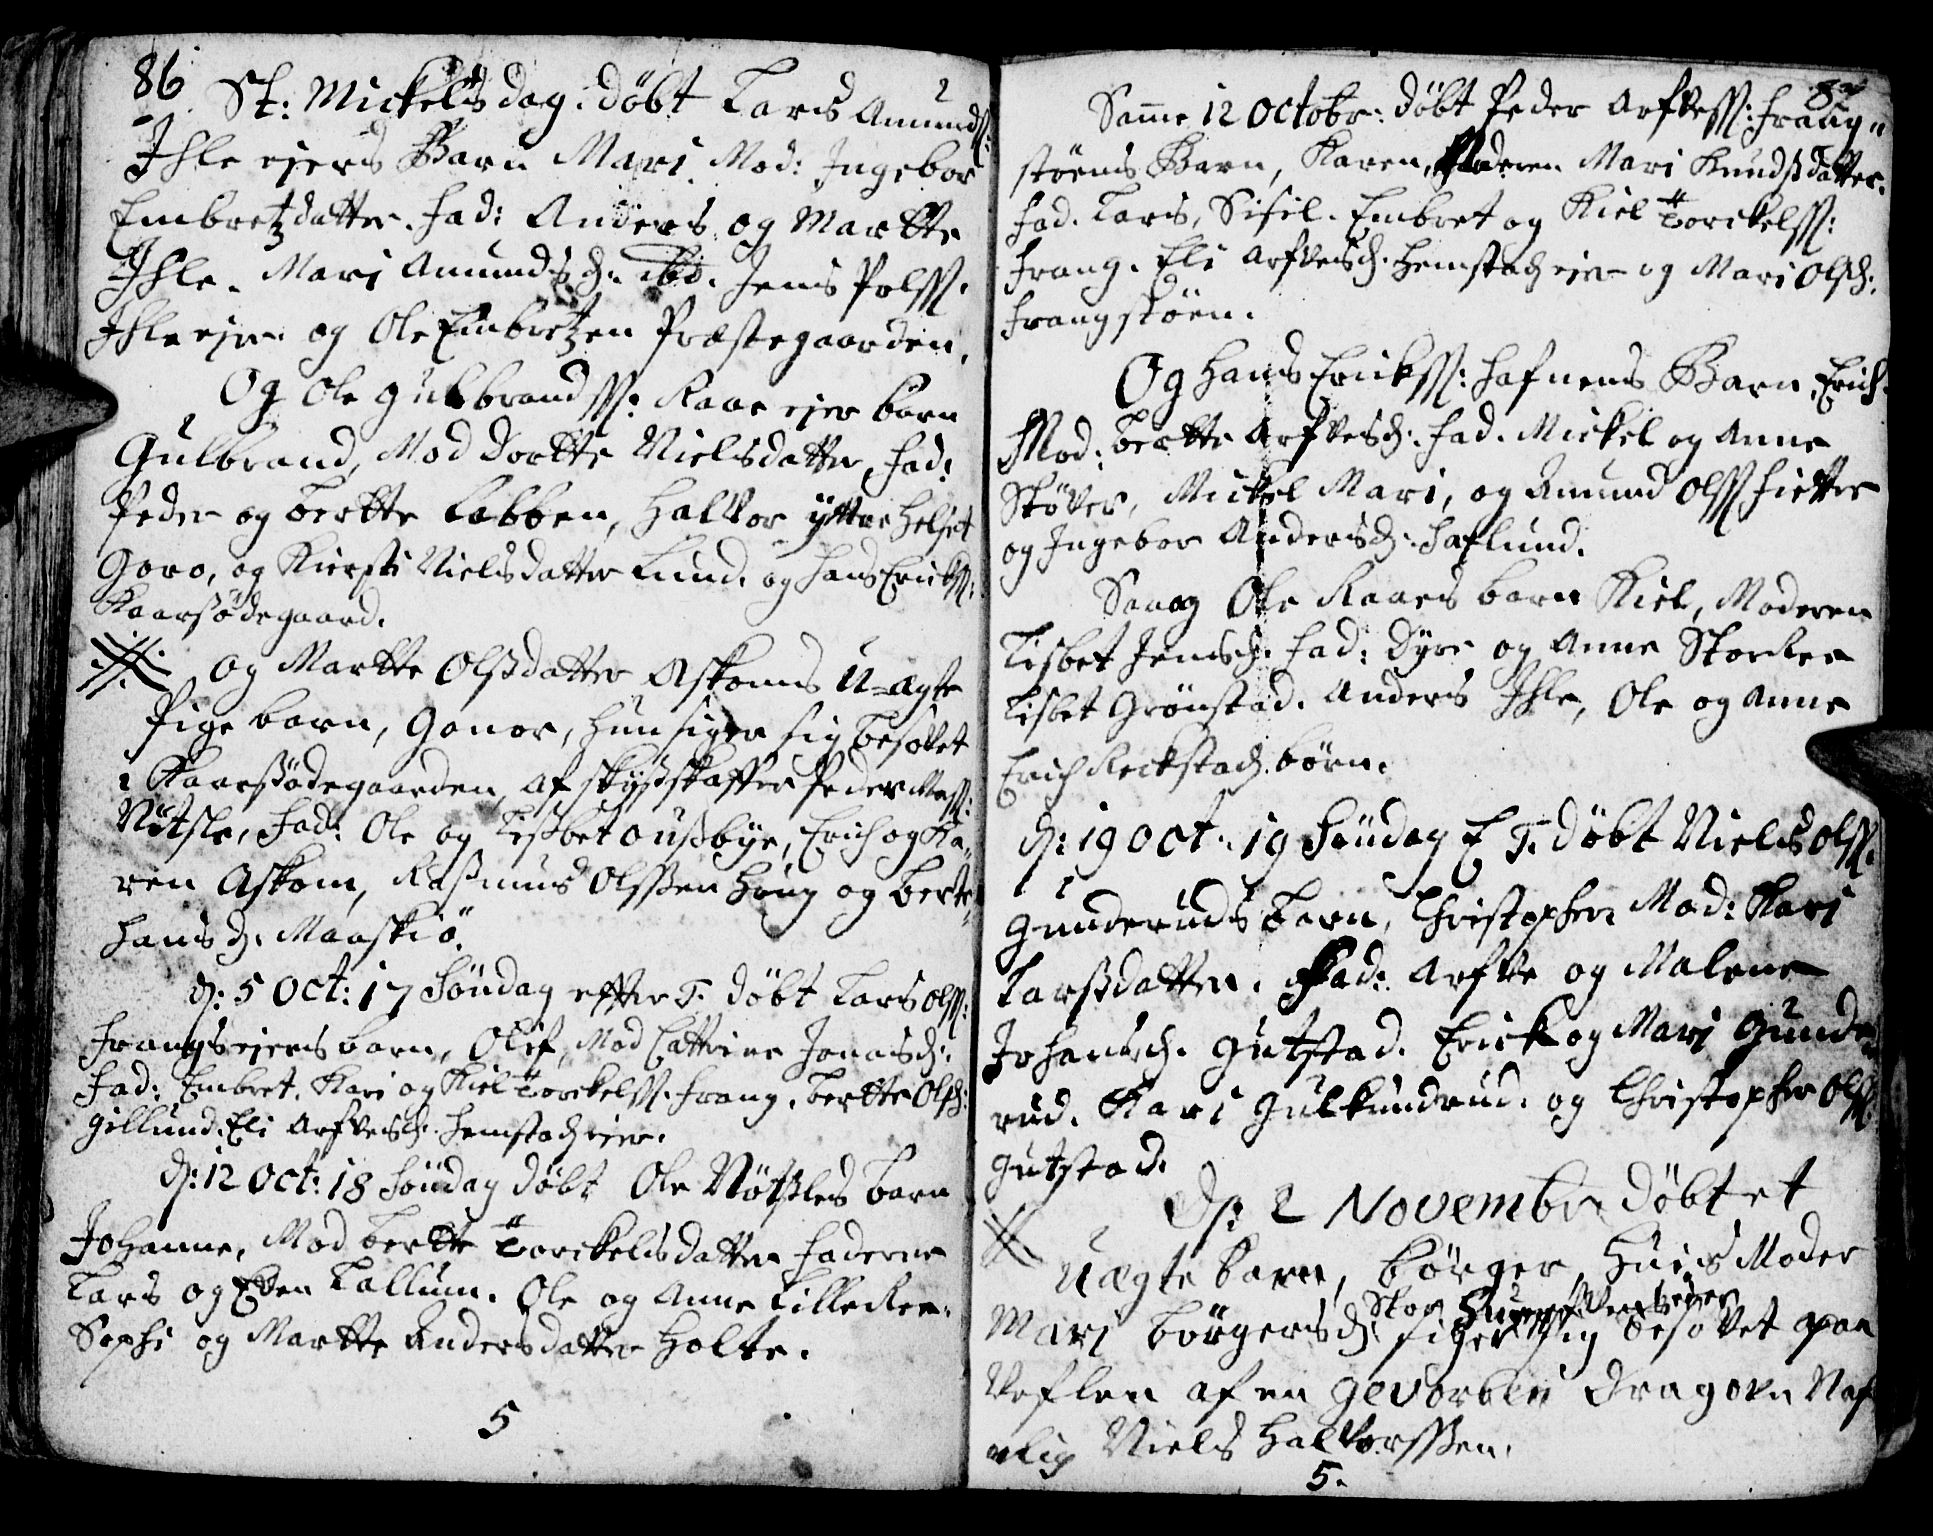 86
St: Mickelsdag. döbt Lars Amundss:
Ihle ejers Barn Mari. Mod: Ingebor
Embretzdatter. Fad: Anders og Martte
Ihle. Mari Amundsd. ibd. Jens Polss.
Ihle ejer og Ole Embretzen Præstegaarden.
Og Ole Gulbrandss: Raae ejer barn
Gulbrand, Mod Dortte Nielsdatter, Fad:
Peder og Bertte Labben, Halvor yttre Helset
Goro, og Kiersti Nielsdatter Lund. og Hans Erickss:
Kaarsödegaard.
og Martte Olsdatter Askoms U-ægte
Pige barn, Gonor, hun siger sig besovet
i Kaarssödegaarden, af skydsskaffer Peder
Nötsle, Fad: Ole og Lisbet Ousbye, Erich og Ka-
ren Askom, Rasmus Olssen Houg og Berte
Hansd. Maaskiö.
d: 5 Oct: 17 Söndag effter T. döbt Lars Olss:
Frangs ejers barn, Olif, Mod Cattrine Jonasd:
Fad: Embret. Kari og Kiel Torckelss. Frang. Bertte Olsd:
Gillund. Eli Arfvesd. Hemstad ejer.
d: 12 Oct: 18 Söndag döbt Ole Nötsles barn
Johanne, Mod Bertte Torckelsdatter Faderne
Lars og Eben Lallum. Ole og Anne Lilleker.
Sophi og Martte Andersdatter Holte.
5
Samme 12 Octobr: döbt Peder Arfvess: Frang-
stöens Barn, Karen, Moderen Mari Knudsdatter.
Fad. Lars, Sisil. Embret og Kiel Torckelss:
Frang. Eli Arfvesd. Hemstad ejer og Mari Olsd:
Frangstöen.
Og Hans Erickss: Hafnens Barn, Erich.
Mod: Bertte Arfvesd. Fad. Mickel og Anne
Stöver, Mickel Mari, og Amund Olss
og Ingebor Andersd. Haflund.
Saa og Ole Raaes barn Kiel, Moderen
Lisbet Jensd. Fad: Dyre og Anne Storker
Lisbet Grönstad. Anders Ihle, Ole og Anne
Erich Reckstad. börn.
d: 19 Oct. 19 Söndag E T. döbt Niels Olss.
Gunderuds barn, Christopher Mod: Kari
Larsdatter. Fad: Arfve og Malene
Johansd. Gutstad. Erick og Mari Gunde-
rud. Kari Gulkundrud. og Christopher Olss
Gutstad.
d: 2 Novembr döbt et
Uægte barn, Börger, Huis Moder
Mari Börgersd. siger sig besovet paa
Veflen af en gevorben Dragon Naf-
nlig Niels Halvorssen.
5.